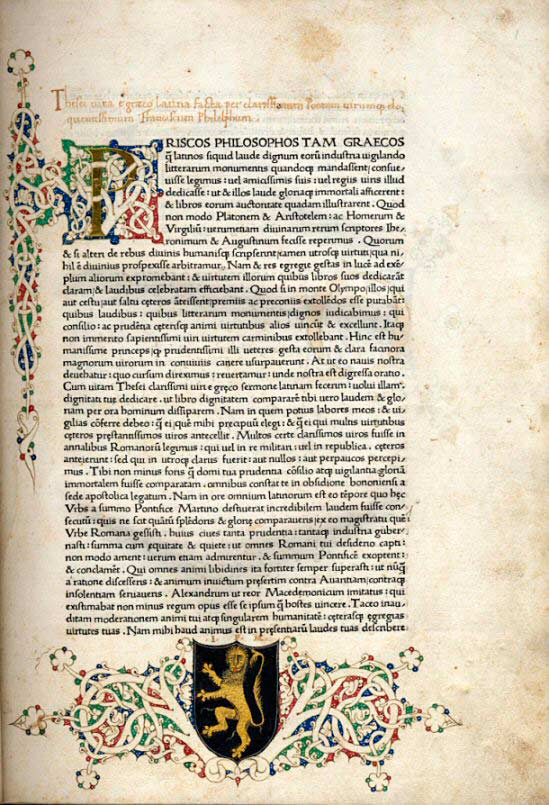 Thesei uita e græco latina facta per clarissimum Poetam uirumq; elo
quentissimum Franciscum Philelphum.
PRISCOS PHILOSOPHOS TAM GRAECOS
q̃ latinos siquid laude dignum eorũ industria uigilando
litterarum monumentis quandoq; mandassent; consue
uisse legimus: uel amicissimis suis: uel regiis uiris illud
dedicasse: ut & illos laude gloriaq; immortali afficerent:
& libros eorum auctoritate quadam illustrarent. Quod
non modo Platonem & Aristotelem: ac Homerum &
Virgiliũ: uerumetiam diuinarum rerum scriptores Ihe/
ronimum & Augustinum fecisse reperimus. Quorum
& si alteri de rebus diuinis humanisq; scripserint; tamen utrosq; uirtuti; qua ni/
hil ẽ diuinius prospexisse arbitramur. Nam & res egregie gestas in lucẽ ad exẽ/
plum aliorum expromebant: & uirtutem illorum quibus libros suos dedicarãt
claram; & laudibus celebratam efficiebant. Quod si in monte Olympo; illos; qui
aut cęstu; aut saltu cęteros ãteissent; premiis ac preconiis extollẽdos esse putabãt:
quibus laudibus: quibus litterarum monumentis; dignos iudicabimus: qui
consilio: ac prudẽtia cęterisq; animi uirtutibus alios uincũt & excellunt. Itaq;
non immerito sapientissimi uiri uirtutem carminibus extollebant. Hinc est hu/
manissime princeps; q̃ prudentissimi illi ueteres gesta eorum & clara facinora
magnorum uirorum in conuiuiis canere usurpauerunt. At ut eo nauis nostra
deuehatur: quo cursum direximus: reuertamur: unde nostra est digressa oratio.
Cum uitam Thesei clarissimi uiri e gręco sermone latinam fecerim: uolui illam;
dignitati tuę dedicare. ut libro dignitatem compararẽ tibi uero laudem & glo/
riam per ora hominum dissiparem. Nam in quem potius labores meos: & ui/
gilias cõferre debeo: q̃ ei; quẽ mihi precipuũ elegi: & q̃ ei qui multis uirtutibus
cęteros pręstantissimos uiros antecellit. Multos certe clarissimos uiros fuisse in
annalibus Romanorũ legimus: qui uel in re militari: uel in republica. cęteros
anteirent: sed qui in utroq; clarus fuerit: aut nullos: aut perpaucos percepi/
mus. Tibi non minus foris q̃ domi tua prudentia cõsilio atq; uigilantia gloriã
immortalem fuisse comparatam. omnibus constat te in obsidione bononiensi a
sede apostolica legatum. Nam in ore omnium latinorum est eo tẽpore quo hęc
Vrbs a summo Pontifice Martino destuerat incredibilem laudem fuisse con/
secutũ: quis ne scit quãtũ splẽdoris & glorię comparaueris; ex eo magistratu quẽ
i Vrbe Romana gessisti. huius ciues tanta prudentia: tantaq; industria guber
nasti: summa cum ęquitate & quiete: ut omnes Romani tui desiderio capti:
non modo ament: uerum etiam admirentur. & summum Pontificẽ exoptent:
& conclamẽt. Qui omnes animi libidines ita fortiter semper superasti: ut nũq̃
a ratione discesseris: & animum inuictum presertim contra Auaritiam; contraq;
insolentiam seruaueris. Alexandrum ut reor Macedemonicum imitatus: qui
existimabat non minus regum opus esse se ipsum q̃ hostes uincere. Taceo inau/
ditam moderationem animi tui atq; singularem humanitatẽ: cęterasq; egregias
uirtutes tuas. Nam mihi haud animus est in presentiarũ laudes tuas describere